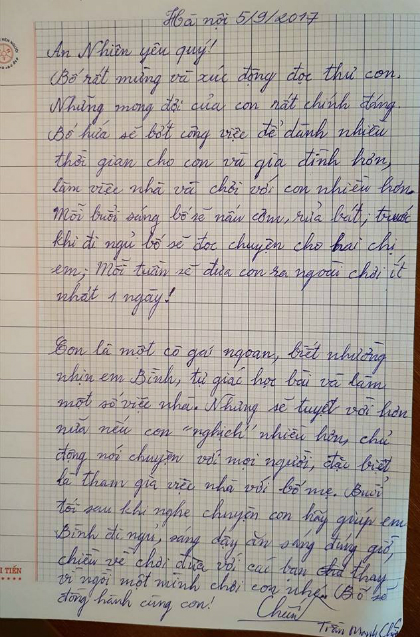 Hà nội 5/9/2017
An Nhiên yêu quý!
Bố rất mừng và xúc động đọc thư con.
Những mong đợi của con rất chính đáng.
Bố hứa sẽ bớt công việc để dành nhiều
thời gian cho con và gia đình hơn,
làm việc nhà và chơi với con nhiều hơn.
Mỗi buổi sáng bố sẽ nấu cơm, rửa bát, trước
khi đi ngủ bố sẽ đọc chuyện cho hai chị
em; Mỗi tuần sẽ đưa con ra ngoài chơi ít
nhất 1 ngày!
Con là một cô gái ngoan, biết nhường
nhịn em Bình, tự giác học bài và làm
một số việc nhà. Nhưng sẽ tuyệt vời hơn
nữa nếu con "nghịch" nhiều hơn, chủ
động nói chuyện với mọi người, đặc biệt
là tham gia việc nhà với bố mẹ. Buổi
tối sau khi nghe chuyện con hãy giúp em
Bình đi ngủ, sáng dậy ăn sáng đúng giờ,
chiều về chơi đùa với các bạn thay
vì ngồi một mình chơi con nhé. Bố sẽ
đồng hành cùng con!
Trần Minh
TIẾN